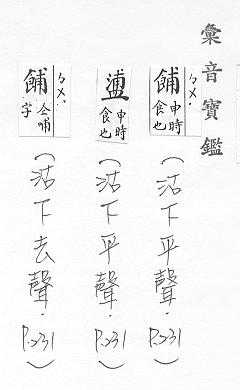 彙音寶鑑
餔 申時食也 ㄅㄨˊ
(沽下平聲. P.231)
申時食也
(沽下平聲. P.231)
餔 仝哺字 ㄅㄨˋ
(沽下去聲. P.231)